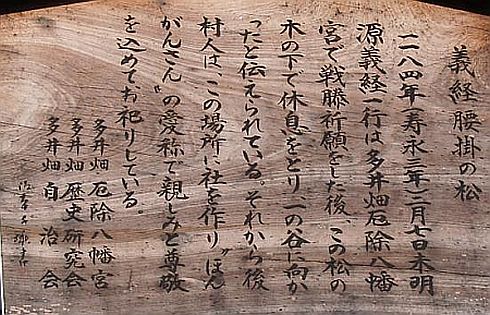 義経腰掛の松
一一八四年(寿永三年)二月七日未明
源義経一行は多井畑厄除八幡
宮で戦勝祈願をした後、この松の
木の下で休息をとり一の谷に向か
ったと伝えられている。それから後
村人は、この場所に社を作り〝ほん
がんさん〟の愛称で親しみと尊敬
を込めてお祀りしている。
多井畑 厄除八幡宮
多井畑 歴史研究会
多井畑 自治会